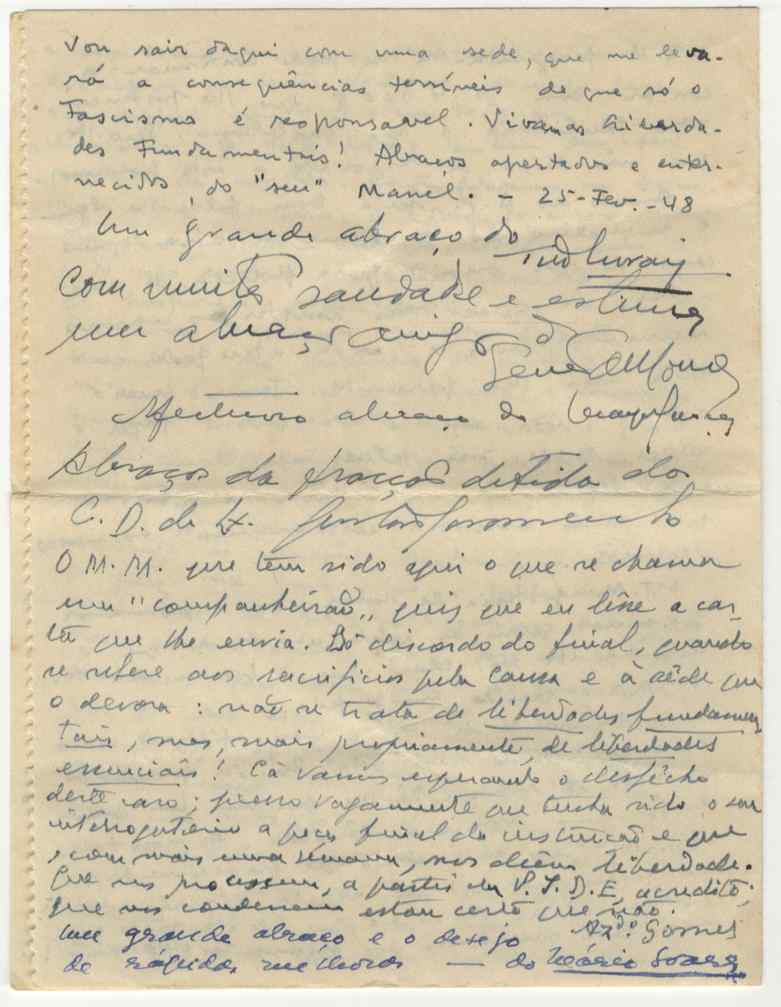 Vou sair daqui com uma sede, que me leva-
rá a consequências terríveis de que só o
Fascismo é responsavel. Vivam as Liberda-
des Fundamentais! Abraços apertados e enter-
necidos, do "seu" Manél. - 25-Fev.-48
Um grande abraço do
Com muita saudade e estima
um abraço amigo do
Afectuoso abraço do
Abraços da fracção detida do
C. D. de Lx. Gustavo Soromenho
O M. M. que tem sido aqui o que se chama
um "companheirão", quis que eu lêsse a car-
ta que lhe envia. Só discordo do final, quando
se refere aos sacrifícios pela causa e à sêde que
o devora: não se trata de liberdades fundamen
tais, mas, mais propriamente, de liberdades
essenciais! Cá vamos esperando o desfêcho
deste caso; penso vagamente que tenha sido o seu
interrogatório a peça final da instrução e que
com mais uma semana, nos dêem liberdade.
Que nos processem, a partir da P.I.D.E, acredito;
que nos condenem estou certo que não.
Az.do Gomes
Um grande abraço e o desejo
de rápidas melhoras — do Mário Soares